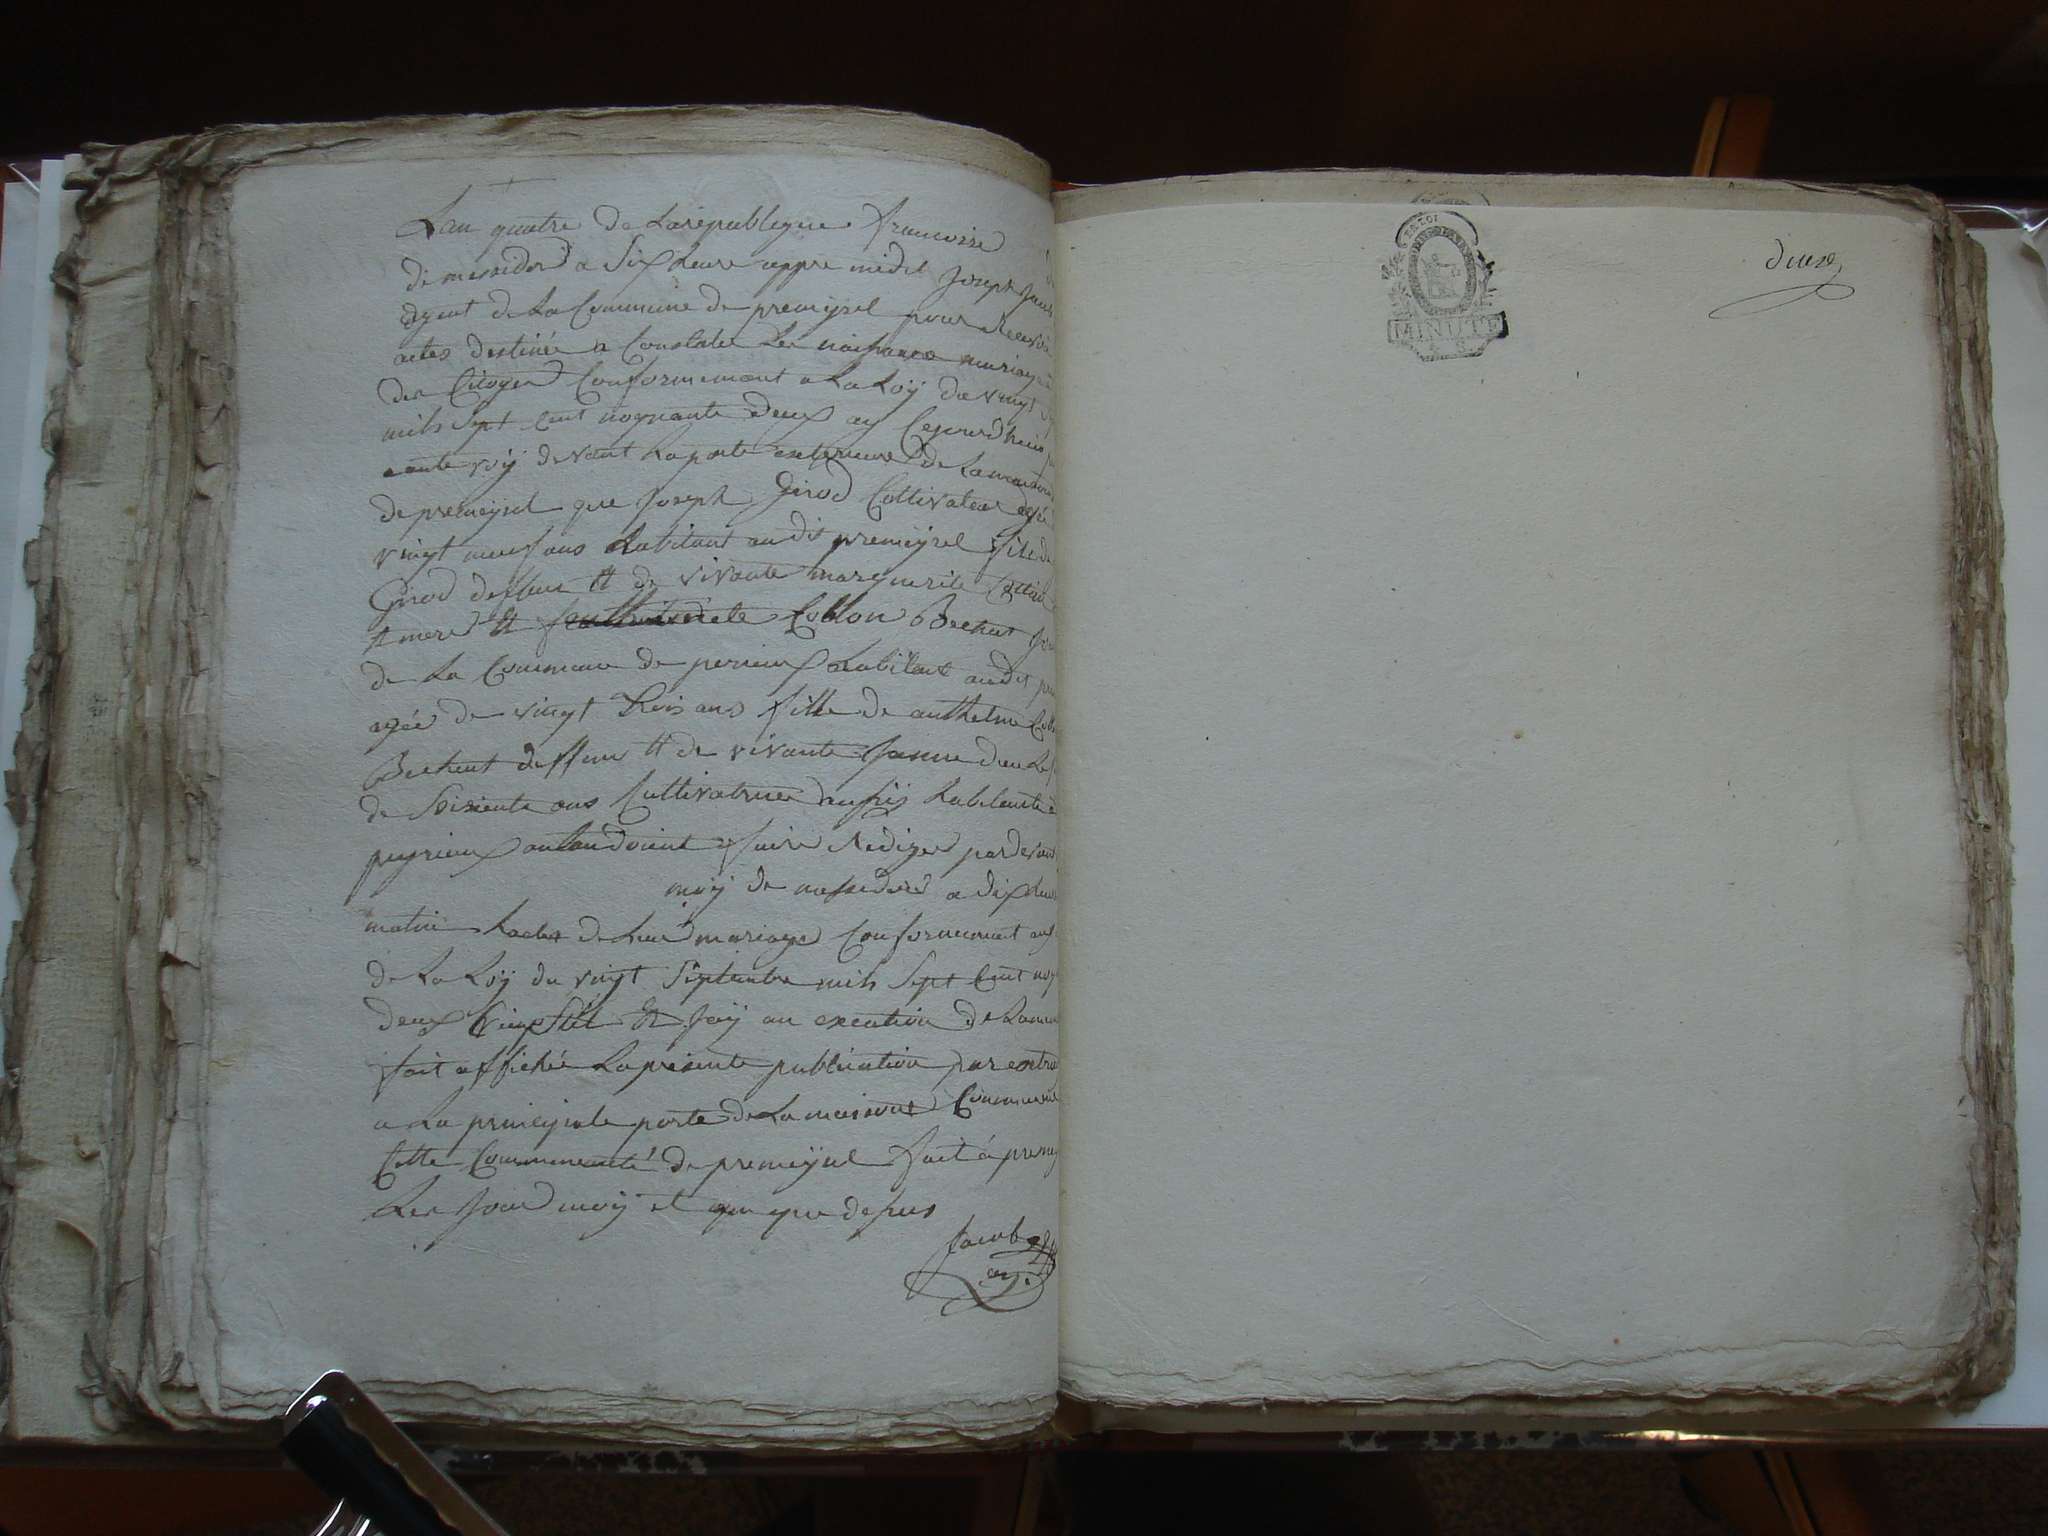 Lan quatre de Larépublique francoise
de messidor a Six heure appre midit Joseph Jacob
agent de La Commune de premeysel pour Recevoir
actes destinée a Constater Les naissances mariage
des Citoyen Conformement a La Loÿ du vingt
mils Sept Cent noynante deux ay Cejourdhuis
devant Laporte exterieure de Lamaison
de premeysel que Joseph Girod Coltivateur agée
vingt neuf ans habitant au dit premeyzel fils de
Girod deffunt et de vivante marguerite
mere et Collon Bechut
de La Commune de perieux habitant audit
agée de vingt Trois ans fille de anthelme
Bechut deffun et de vivante Janne
de Soisiente ans Cultivatrice aussy habitante
peyrieux antandoient faire Rediger pardevant
moÿ de messidor a dix heure
matin Lacte de Leur mariage Conformement aux
de La Loÿ du vingt Septembre mils Sept Cent
deux Vieux Stil Et Jaÿ an execution de
fait affichée Lapresente publication par extrait
a La principale porte de La maison Commune
Cette Communauté de premeÿsel fait á
Les Jour moÿ et que depus
Jacob
ag.
EN LOI
MINUTE
duez